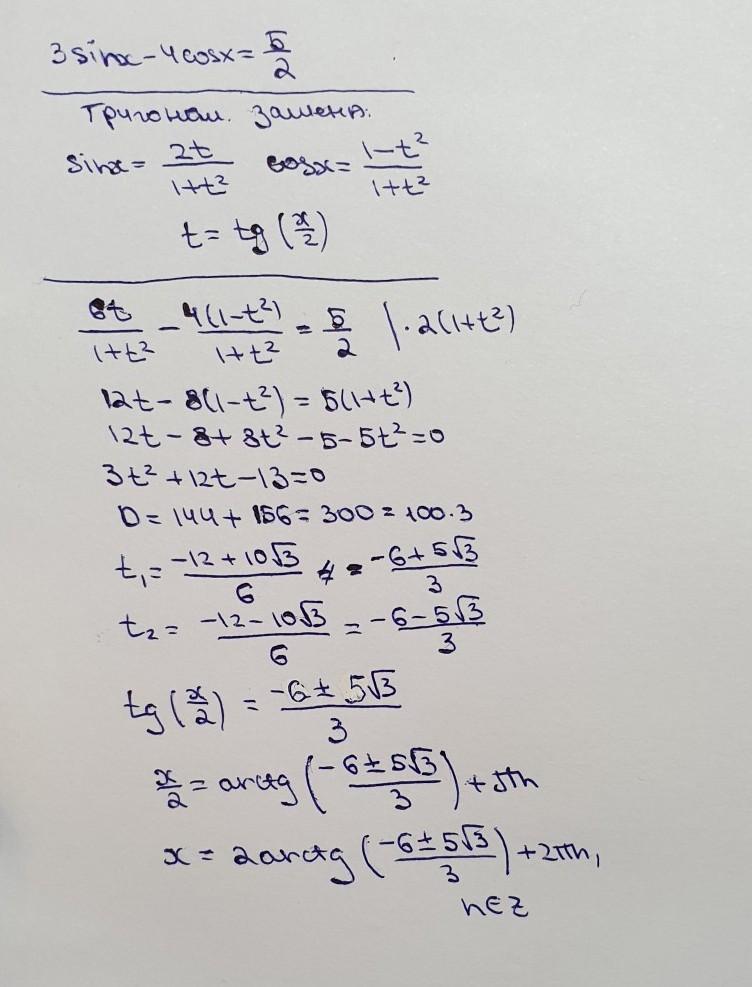 3sinx - 4cosx = 5/2
Тригоном. замена:
sinx = 2t/(1+t²) cosx = (1-t²)/(1+t²)
t = tg(x/2)
6t/(1+t²) - 4(1-t²)/(1+t²) = 5/2 | · 2(1+t²)
12t - 8(1-t²) = 5(1+t²)
12t - 8 + 8t² - 5 - 5t² = 0
3t² + 12t - 13 = 0
D = 144 + 156 = 300 = 100·3
t₁ = (-12 + 10√3)/6 = (-6 + 5√3)/3
t₂ = (-12 - 10√3)/6 = (-6 - 5√3)/3
tg(x/2) = (-6 ± 5√3)/3
x/2 = arctg((-6 ± 5√3)/3) + πn
x = 2arctg((-6 ± 5√3)/3) + 2πn,
n∈Z